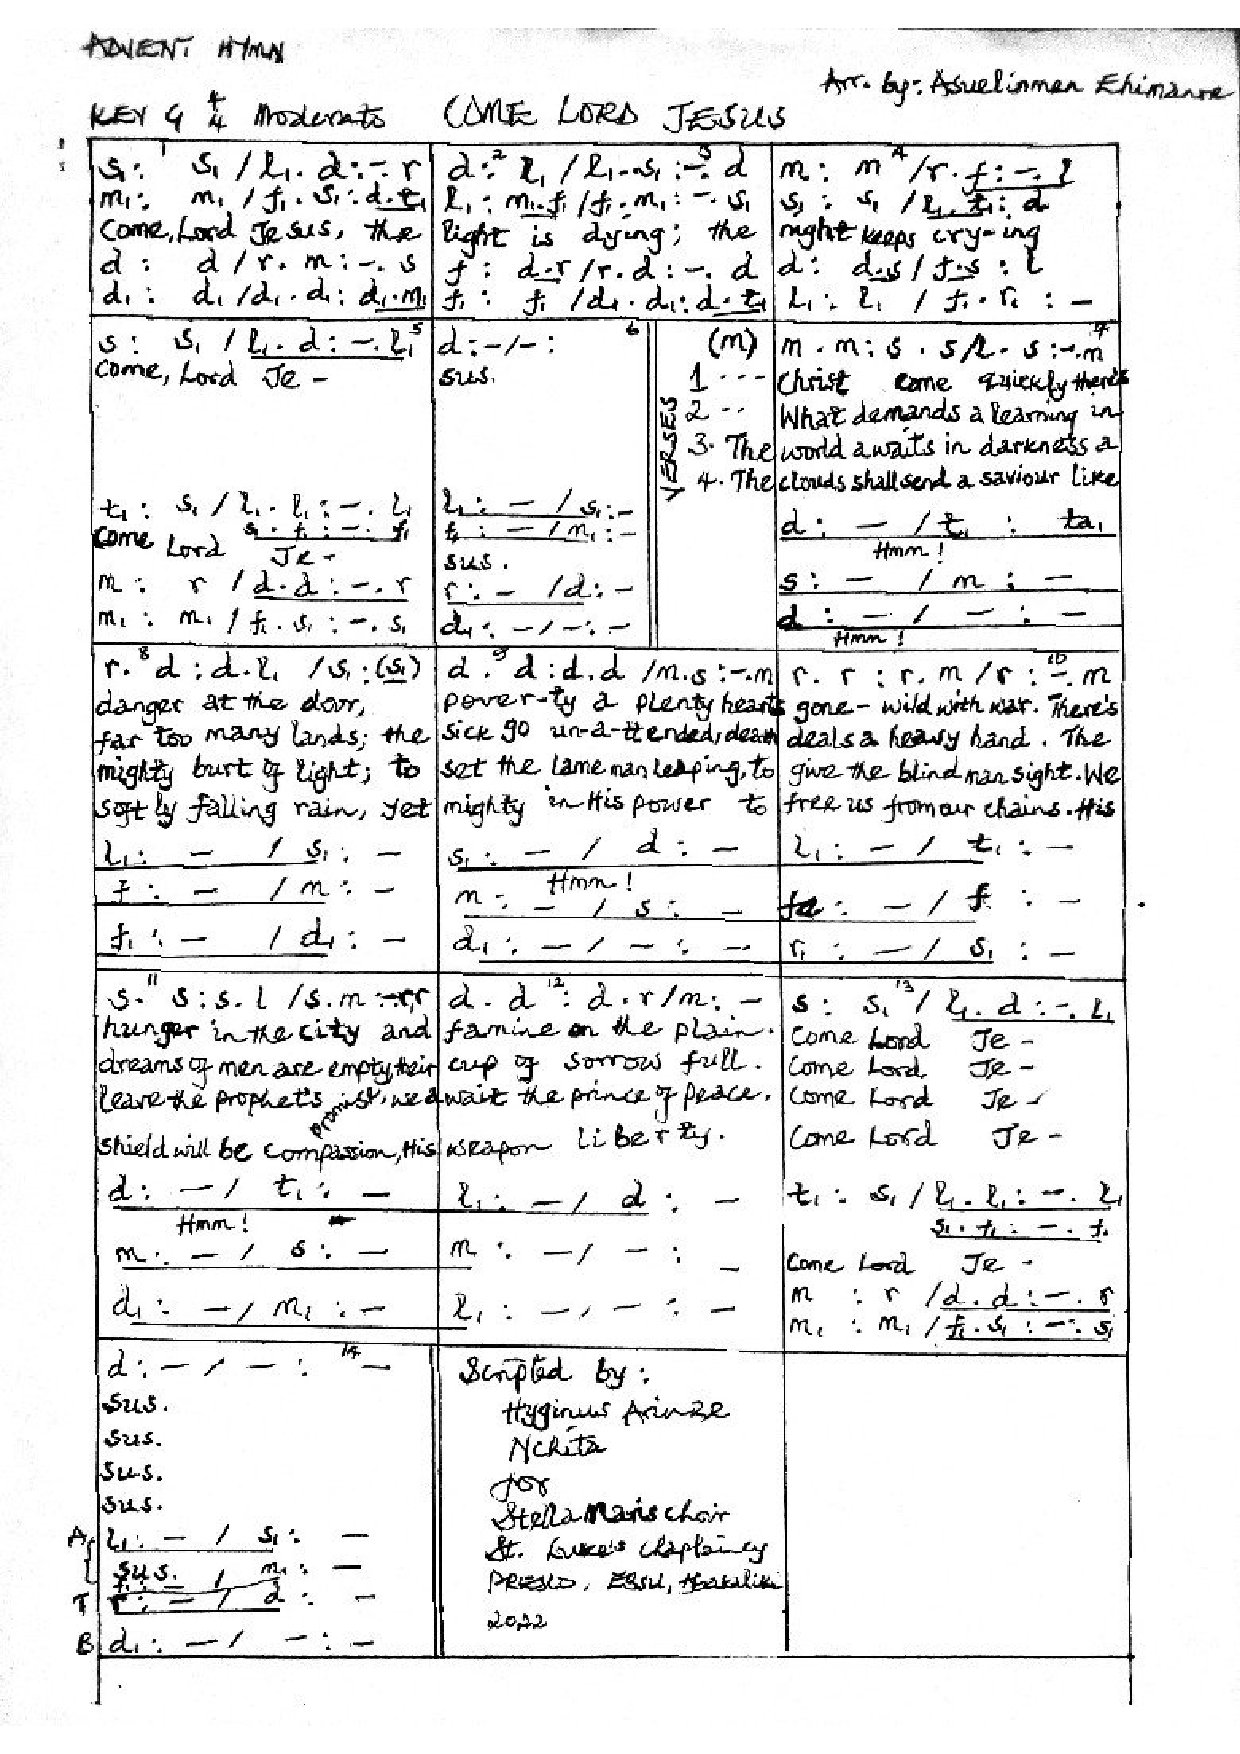 ADVENT HYMN
Arr. by: Asuelinmen Ehimanre
KEY G 4/4 Moderato COME LORD JESUS
s₁: ¹ s₁ / l₁. d: -. r
m₁: m₁ / f₁. s₁: d. t₁
Come, Lord Jesus, the
d: d / r. m: -. s
d₁: d₁ / d₁. d₁: d₁. m₁
d: ² l₁ / l₁. s₁: -. ³ d
l₁: m₁. f₁ / f₁. m₁: -. s₁
light is dying; the
f: d. r / r. d: -. d
f₁: f₁ / d₁. d₁: d. t₁
m: m ⁴ / r. f: -. l
s₁: s₁ / l₁. t₁: d
night keeps cry-ing
d: d. s / f. s: l
l₁: l₁ / f₁. r₁: -
s: s₁ / l₁. d: -. l₁ ⁵
Come, Lord Je -
t₁: s₁ / l₁. l₁: -. l₁
s₁. f₁: -. f₁
Come Lord Je -
m: r / d. d: -. r
m₁: m₁ / f₁. s₁: -. s₁
d: - / - : ⁶
sus.
l₁: - / s₁: -
f₁: - / m₁: -
sus.
r: - / d: -
d₁: - / - : -
VERSES
(m)
1 ---
2 --
3. The
4. The
m. m: s. s / l. s: -. m
Christ come quickly there's
What demands a learning in
world awaits in darkness a
clouds shall send a saviour like
d: - / t₁: ta₁
Hmm!
s: - / m: -
d: - / - : -
Hmm!
r. ⁸ d: d. l₁ / s₁: (s₁)
danger at the door,
far too many lands; the
mighty burt of light; to
softly falling rain, yet
l₁: - / s₁: -
f: - / m: -
f₁: - / d₁: -
d. ⁹ d: d. d / m. s: -. m
pover-ty a plenty hearts
sick go un-a-ttended, death
set the lame man leaping, to
mighty in His power to
s₁: - / d: -
Hmm!
m: - / s: -
d₁: - / - : -
r. r: r. m / r: ¹⁰ -. m
gone - wild with war. There's
deals a heavy hand. The
give the blind man sight. We
free us from our chains. His
l₁: - / t₁: -
fe: - / f: -
r₁: - / s₁: -
s. ¹¹ s: s. l / s. m: -. r, r
hunger in the city and
dreams of men are empty, their
leave the prophet's promise, we a
shield will be compassion, His
d: - / t₁: -
Hmm!
m: - / s: -
d₁: - / m₁: -
d. d ¹²: d. r / m: -
famine on the plain.
cup of sorrow full.
wait the prince of peace.
weapon liberty.
l₁: - / d: -
m: - / - : -
l₁: - / - : -
s: s₁ ¹³ / l₁. d: -. l₁
Come Lord Je -
Come Lord Je -
Come Lord Je -
Come Lord Je -
t₁: s₁ / l₁. l₁: -. l₁
s₁. f₁: -. f₁
Come Lord Je -
m: r / d. d: -. r
m₁: m₁ / f₁. s₁: -. s₁
d: - / - : ¹⁴ -
sus.
sus.
sus.
sus.
A l₁: - / s₁: -
sus. m₁: -
f₁: - /
T r: - / d: -
B d₁: - / - : -
Scripted by:
Hyginus Arinze
Nchita
for
Stella Maris choir
St. Luke's chaplaincy
PRESCO, EBSU, Abakaliki
2022